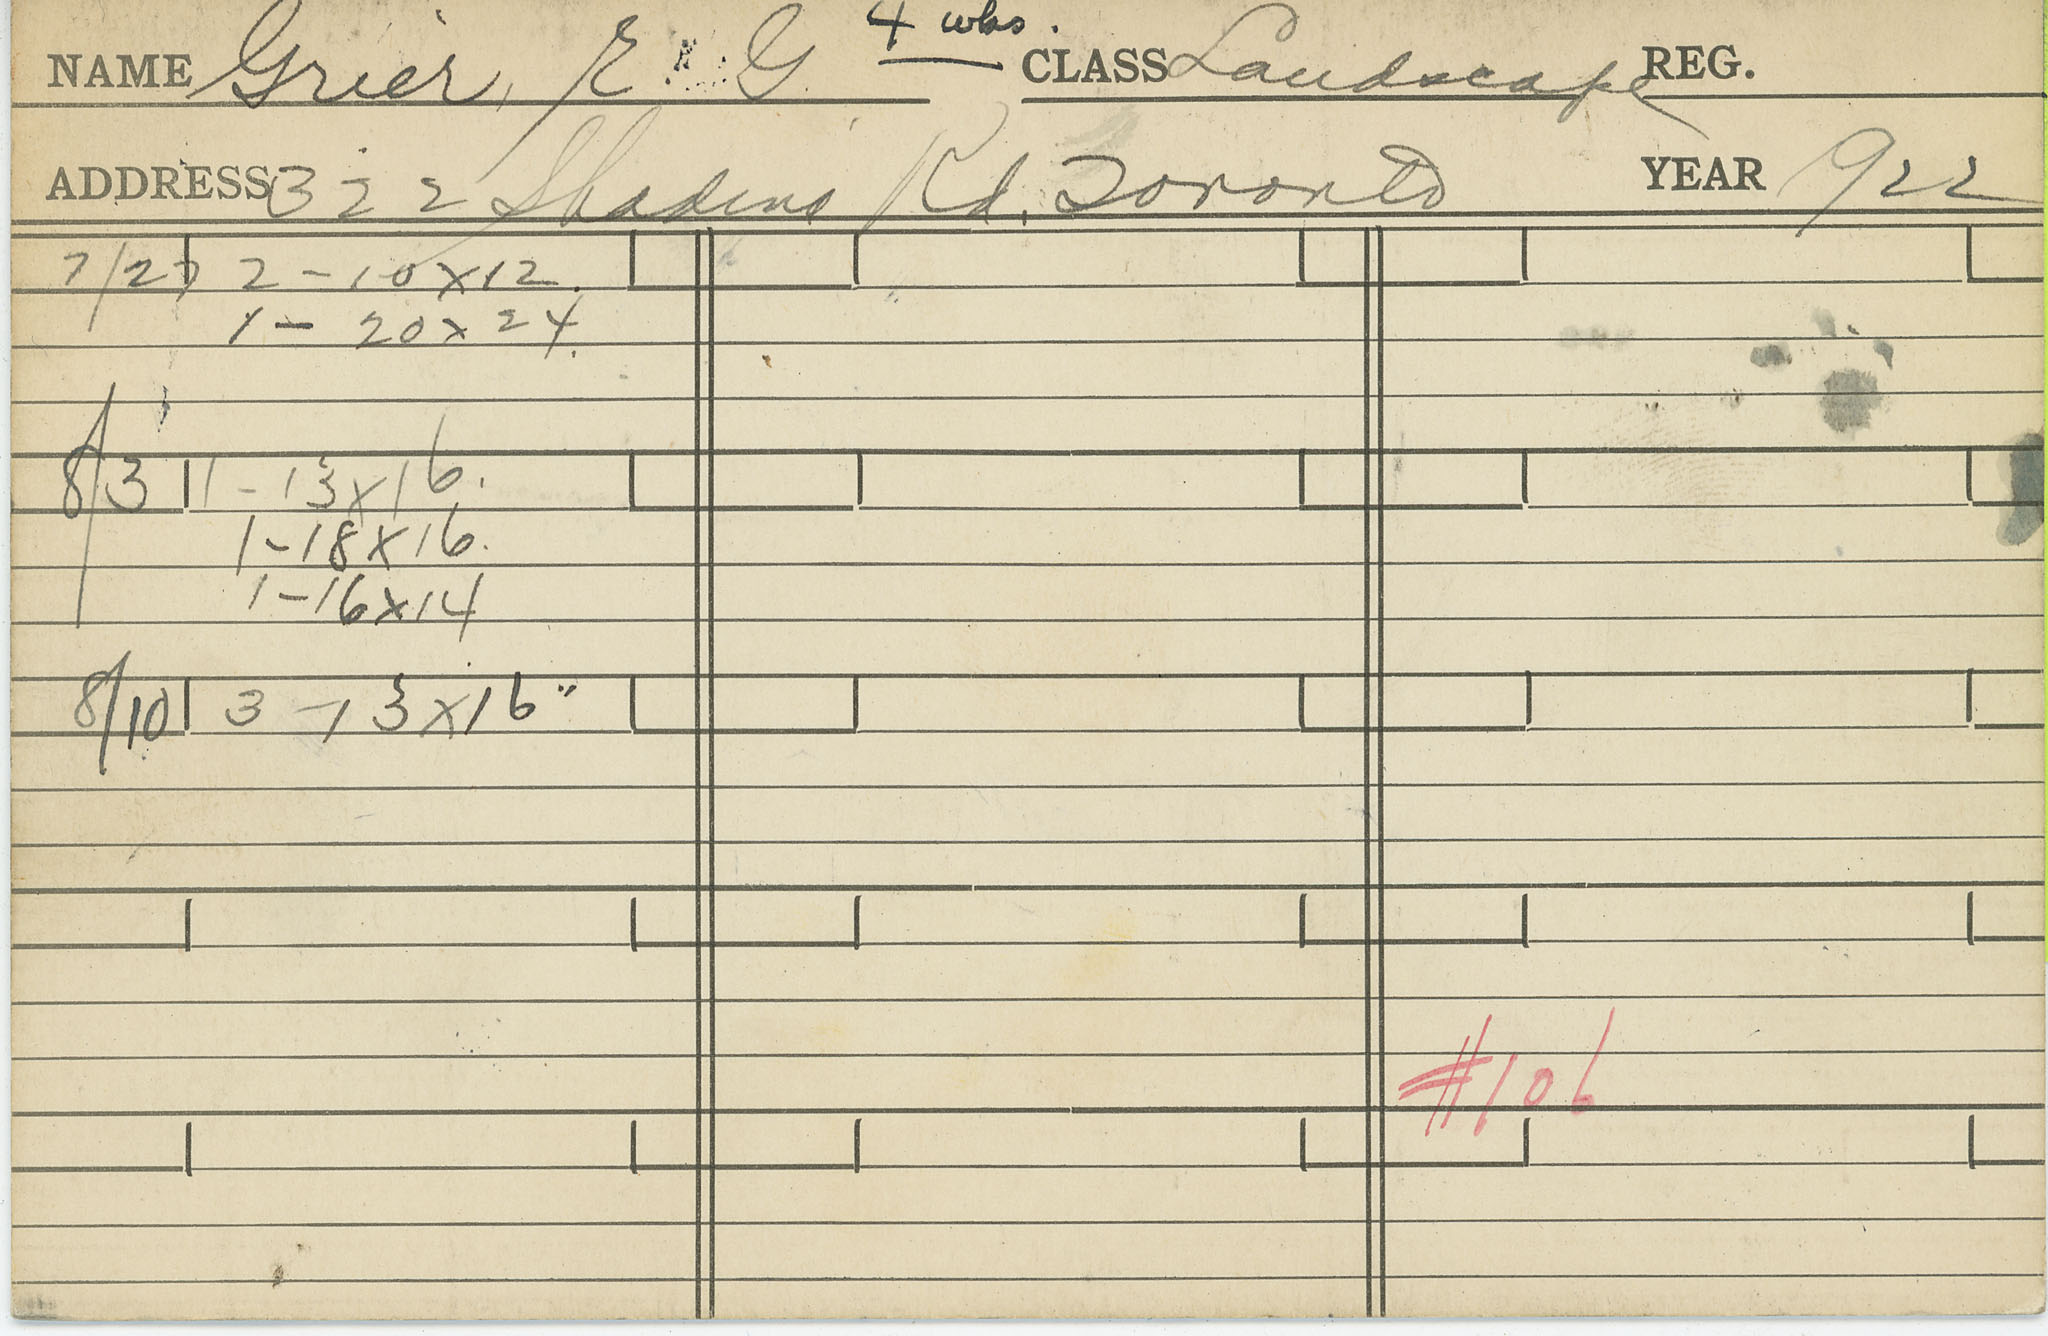 4 wks.
NAME Grier, E. G. CLASS Landscape REG.
ADDRESS 322 Rd, Toronto YEAR 1922
7/27 2 - 10 x 12.
1 - 20 x 24.
8/3 1 - 13 x 16.
1 - 18 x 16.
1 - 16 x 14
8/10 3 - 13 x 16"
#106